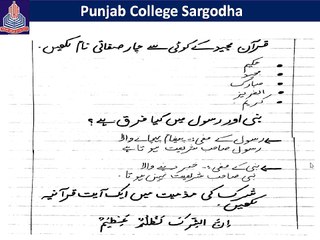 Punjab College Sargodha
قرآن مجید کے کوئی سے چار صفاتی نام لکھیں.
حکیم
مبارک
العزیز
کریم
نبی اور رسول میں کیا فرق ہے؟
رسول کے معنی: پیغام پہچانے والا
رسول صاحب شریعت ہوتا ہے
نبی کے معنی: خبر دینے والا
نبی صاحب شریعت نہیں ہوتا.
شرک کی مذمت میں ایک آیت قرآنیہ
لکھیں.
اِنَّ الشِّرْکَ لَظُلْمٌ عَظِیْمٌ